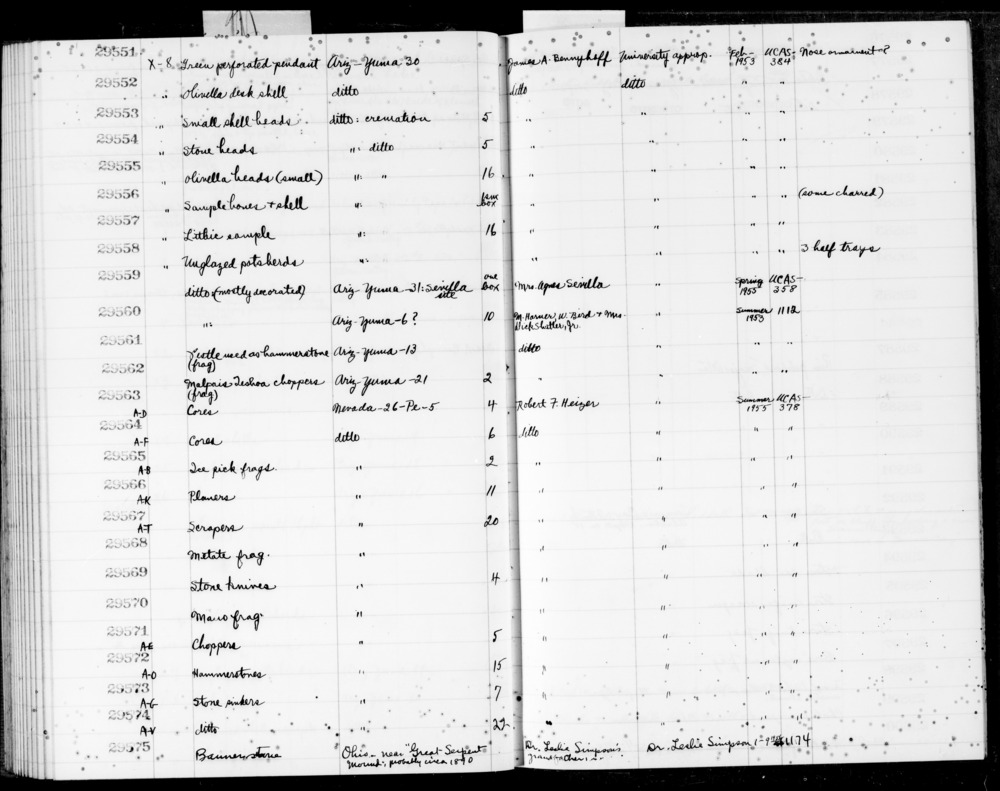 29551 X-8 Green perforated pendant Ariz-Yuma 30 James A. Bennyhoff University approp. Feb- 1953 UCAS- 384 Nose ornament?
29552 " Olivella desk shell ditto ditto ditto " "
29553 " Small shell beads ditto: cremation 5 " " " "
29554 " Stone beads ": ditto 5 " " " "
29555 " Olivella beads (small) ": " 16 " " " "
29556 " Sample bones + shell ": 1 sm box " " " " (some charred)
29557 " Lithic sample ": 16 " " " "
29558 " Unglazed potsherds ": " " " " 3 half trays
29559 ditto: (mostly decorated) Ariz-Yuma-31: Sevilla site one box Mrs. Agnes Sevilla " Spring 1955 UCAS- 358
29560 ": Ariz-Yuma-6? 10 W. Bird + Mrs. Dick Shutler, Jr. " Summer 1953 1112
29561 Pestle used as hammerstone (frag) Ariz-Yuma-13 ditto " " "
29562 Malpais Teshoa choppers (frag) Ariz-Yuma-21 2 " " " "
29563 A-D Cores Nevada-26-Pe-5 4 Robert F. Heizer " Summer 1955 UCAS- 378
29564 A-F Cores ditto 6 ditto " " "
29565 A-B Ice pick frags. " 2 " " " "
29566 A-K Planers " 11 " " " "
29567 A-T Scrapers " 20 " " " "
29568 Metate frag. " " " " "
29569 Stone knives " 4 " " " "
29570 Mano frag. " " " " "
29571 A-E Choppers " 5 " " " "
29572 A-O Hammerstones " 15 " " " "
29573 A-G Stone " 7 " " " "
29574 A-V ditto " 22 " " " "
29575 Banner stone Ohio - near "Great Serpent Mound", probably circa 1890 Dr. Leslie Simpson's grandfather Dr. Leslie Simpson 1174